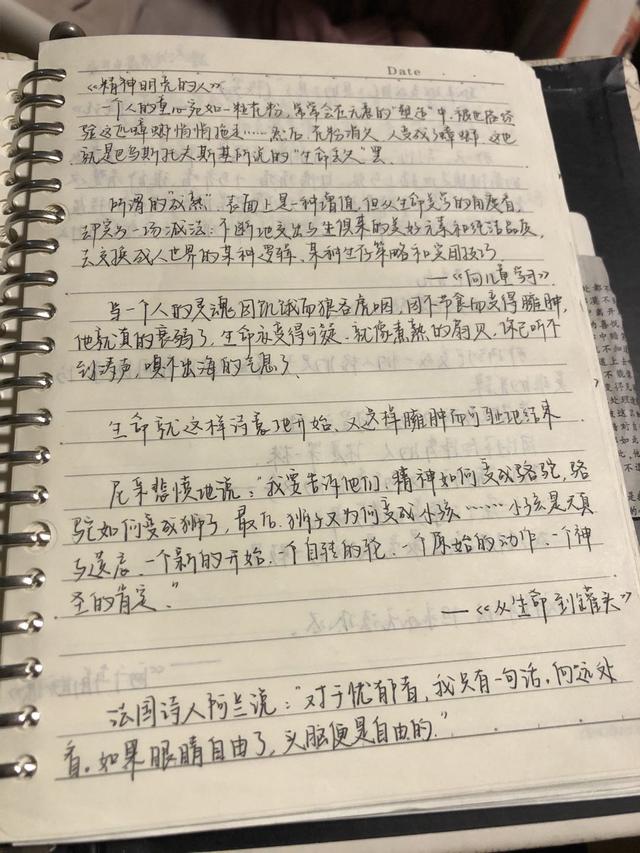 Date
《精神明亮的人》
一个人的童心宛如一粒花粉，常常会在无意的"塑造"中，被世俗经
验这匹蟑螂悄悄拖走……然后，花粉消失，人变成了蟑螂。这也
就是巴乌斯托夫斯基所说的"生命丢失"罢
所谓的"成熟"，表面上是一种增值，但从生命美学的角度看，
却实为一场减法：不断地交出与生俱来的美好元素和纯洁品质，
去交换成人世界的某种逻辑、某种生存策略和实用技巧
——《向儿童学习》
当一个人的灵魂因饥饿而狼吞虎咽，因不节食而变得臃肿，
他就真的衰弱了，生命亦变得可疑，就像煮熟的扇贝，你已听不
到涛声，嗅不出海的气息了
生命就这样诗意地开始，又这样臃肿而可耻地结束
尼采悲愤地说："我要告诉他们，精神如何变成骆驼，骆
驼如何变成狮子，最后，狮子又为何变成小孩……小孩是天真
与遗忘，一个新的开始，一个自转的轮，一个原始的动作，一个神
圣的肯定。"
——《从生命到罐头》
法国诗人阿兰说："对于忧郁者，我只有一句话，向远处
看。如果眼睛自由了，头脑便是自由的."